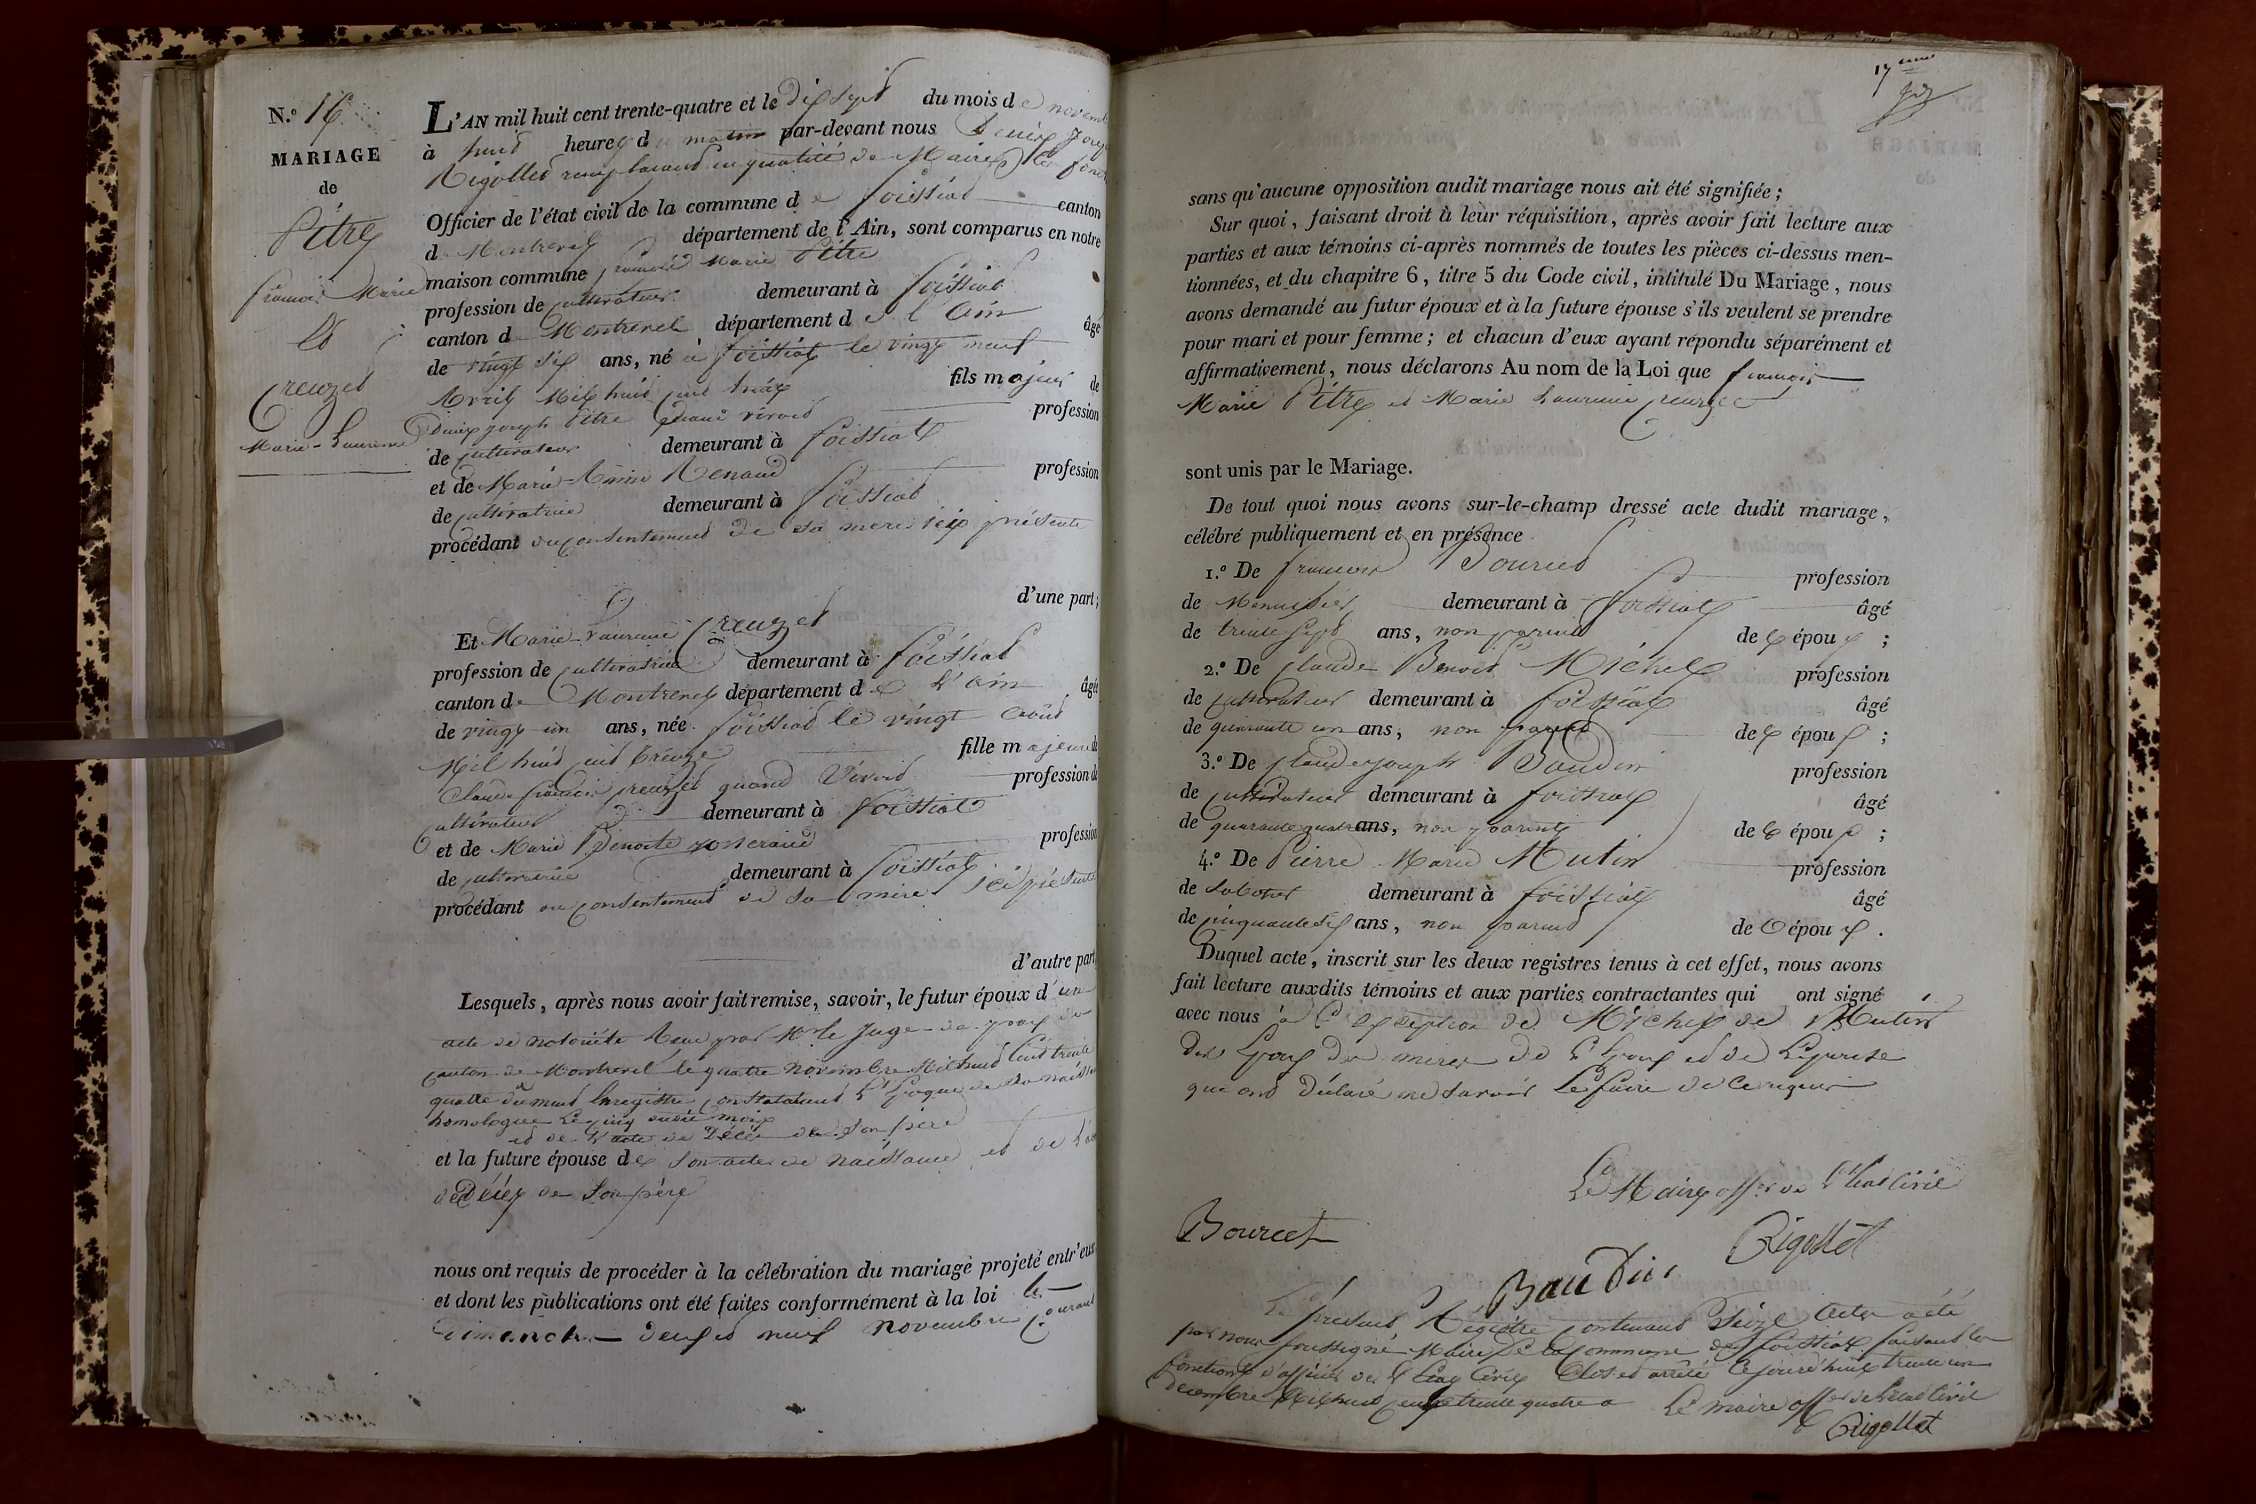 N.o 16
MARIAGE
de
Pitre
françois Marie
et
Creuzet
Marie-Laurence
L'AN mil huit cent trente-quatre et le dix sept du mois de novemb
à huit heures du matin par-devant nous Denis Josep
Rigollet en qualité de Maire
Officier de l'état civil de la commune de foissiat canton
de Montrevel département de l'Ain, sont comparus en notre
maison commune françois Marie Pitre
profession de cultivateur demeurant à foissiat
canton de Montrevel département de l'ain âgé
de vingt six ans, né à foissiat le vingt neuf
Avril Mil huit cent fils majeur de
Denis joseph Pitre quand vivoit profession
de cultivateur demeurant à foissiat
et de Marie Renaud profession
de cultivatrice demeurant à foissiat
procédant du consentement de sa mere icy présente
d'une part;
Et Marie Laurence Creuzet
profession de cultivatrice demeurant à foissiat
canton de Montrevel département de l'ain âgée
de vingt un ans, née foissiat le vingt août
Mil huit cent treize fille majeure de
Claude françois creuzet quand vivoit profession de
cultivateur demeurant à foissiat
et de Marie Benoite profession
de cultivatrice demeurant à foissiat
procédant au consentement de sa mère ici présente
d'autre part
Lesquels, après nous avoir fait remise, savoir, le futur époux d'un
acte de notoriété par Mr le Juge de paix du
canton de Montrevel le quatre novembre Mil huit cent trente
quatre dument Enregistré constatant l'Epoque de sa naissa
homologué le cinq dudit mois
et de l'acte de Décès de son père
et la future épouse de son acte de naissance et de l'a
de Décès de son père
nous ont requis de procéder à la célébration du mariage projeté entr'eux
et dont les publications ont été faites conformément à la loi les
dimanche deux et neuf novembre courant
17eme
sans qu'aucune opposition audit mariage nous ait été signifiée;
Sur quoi, faisant droit à leur réquisition, après avoir fait lecture aux
parties et aux témoins ci-après nommés de toutes les pièces ci-dessus men-
tionnées, et du chapitre 6, titre 5 du Code civil, intitulé Du Mariage, nous
avons demandé au futur époux et à la future épouse s'ils veulent se prendre
pour mari et pour femme; et chacun d'eux ayant répondu séparément et
affirmativement, nous déclarons Au nom de la Loi que françois
Marie Pitre et Marie Laurence creuzet
sont unis par le Mariage.
De tout quoi nous avons sur-le-champ dressé acte dudit mariage,
célébré publiquement et en présence
1.o De francois Bourcet profession
de Menuisier demeurant à foissiat âgé
de trente sept ans, non parent de l'époux;
2.o De claude Benoit Michel profession
de cultivateur demeurant à foissiat âgé
de quarante un ans, non parent de l'époux;
3.o De claude joseph Baudin profession
de cultivateur demeurant à foissiat âgé
de quarante quatre ans, non parent de l'époux;
4.o De Pierre Marie Mutin profession
de Sabotier demeurant à foissiat âgé
de cinquante six ans, non parent de l'époux.
Duquel acte, inscrit sur les deux registres tenus à cet effet, nous avons
fait lecture auxdits témoins et aux parties contractantes qui ont signé
avec nous à l'exception de Michel de Mutin
des Epoux des meres de l'Epoux et de l'Epouse
qui ont Déclaré ne savoir le faire de ce requis
Le Maire offer de l'état civil
Bourcet
Rigollet
Baudin
Le présent Régistre contenant Seize actes a été
par nous soussigné Maire de la commune de foissiat faisant les
fonctions d'officier de l'Etat Civil Clos et arrêté ce jourd'hui trente un
décembre Mil huit cent trente quatre
Le maire offer de l'état civil
Rigollet